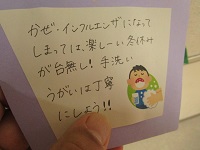 かぜ・インフルエンザになって
しまっては、楽しーい冬休み
が台無し!手洗い
うがいは丁寧
にしよう!!